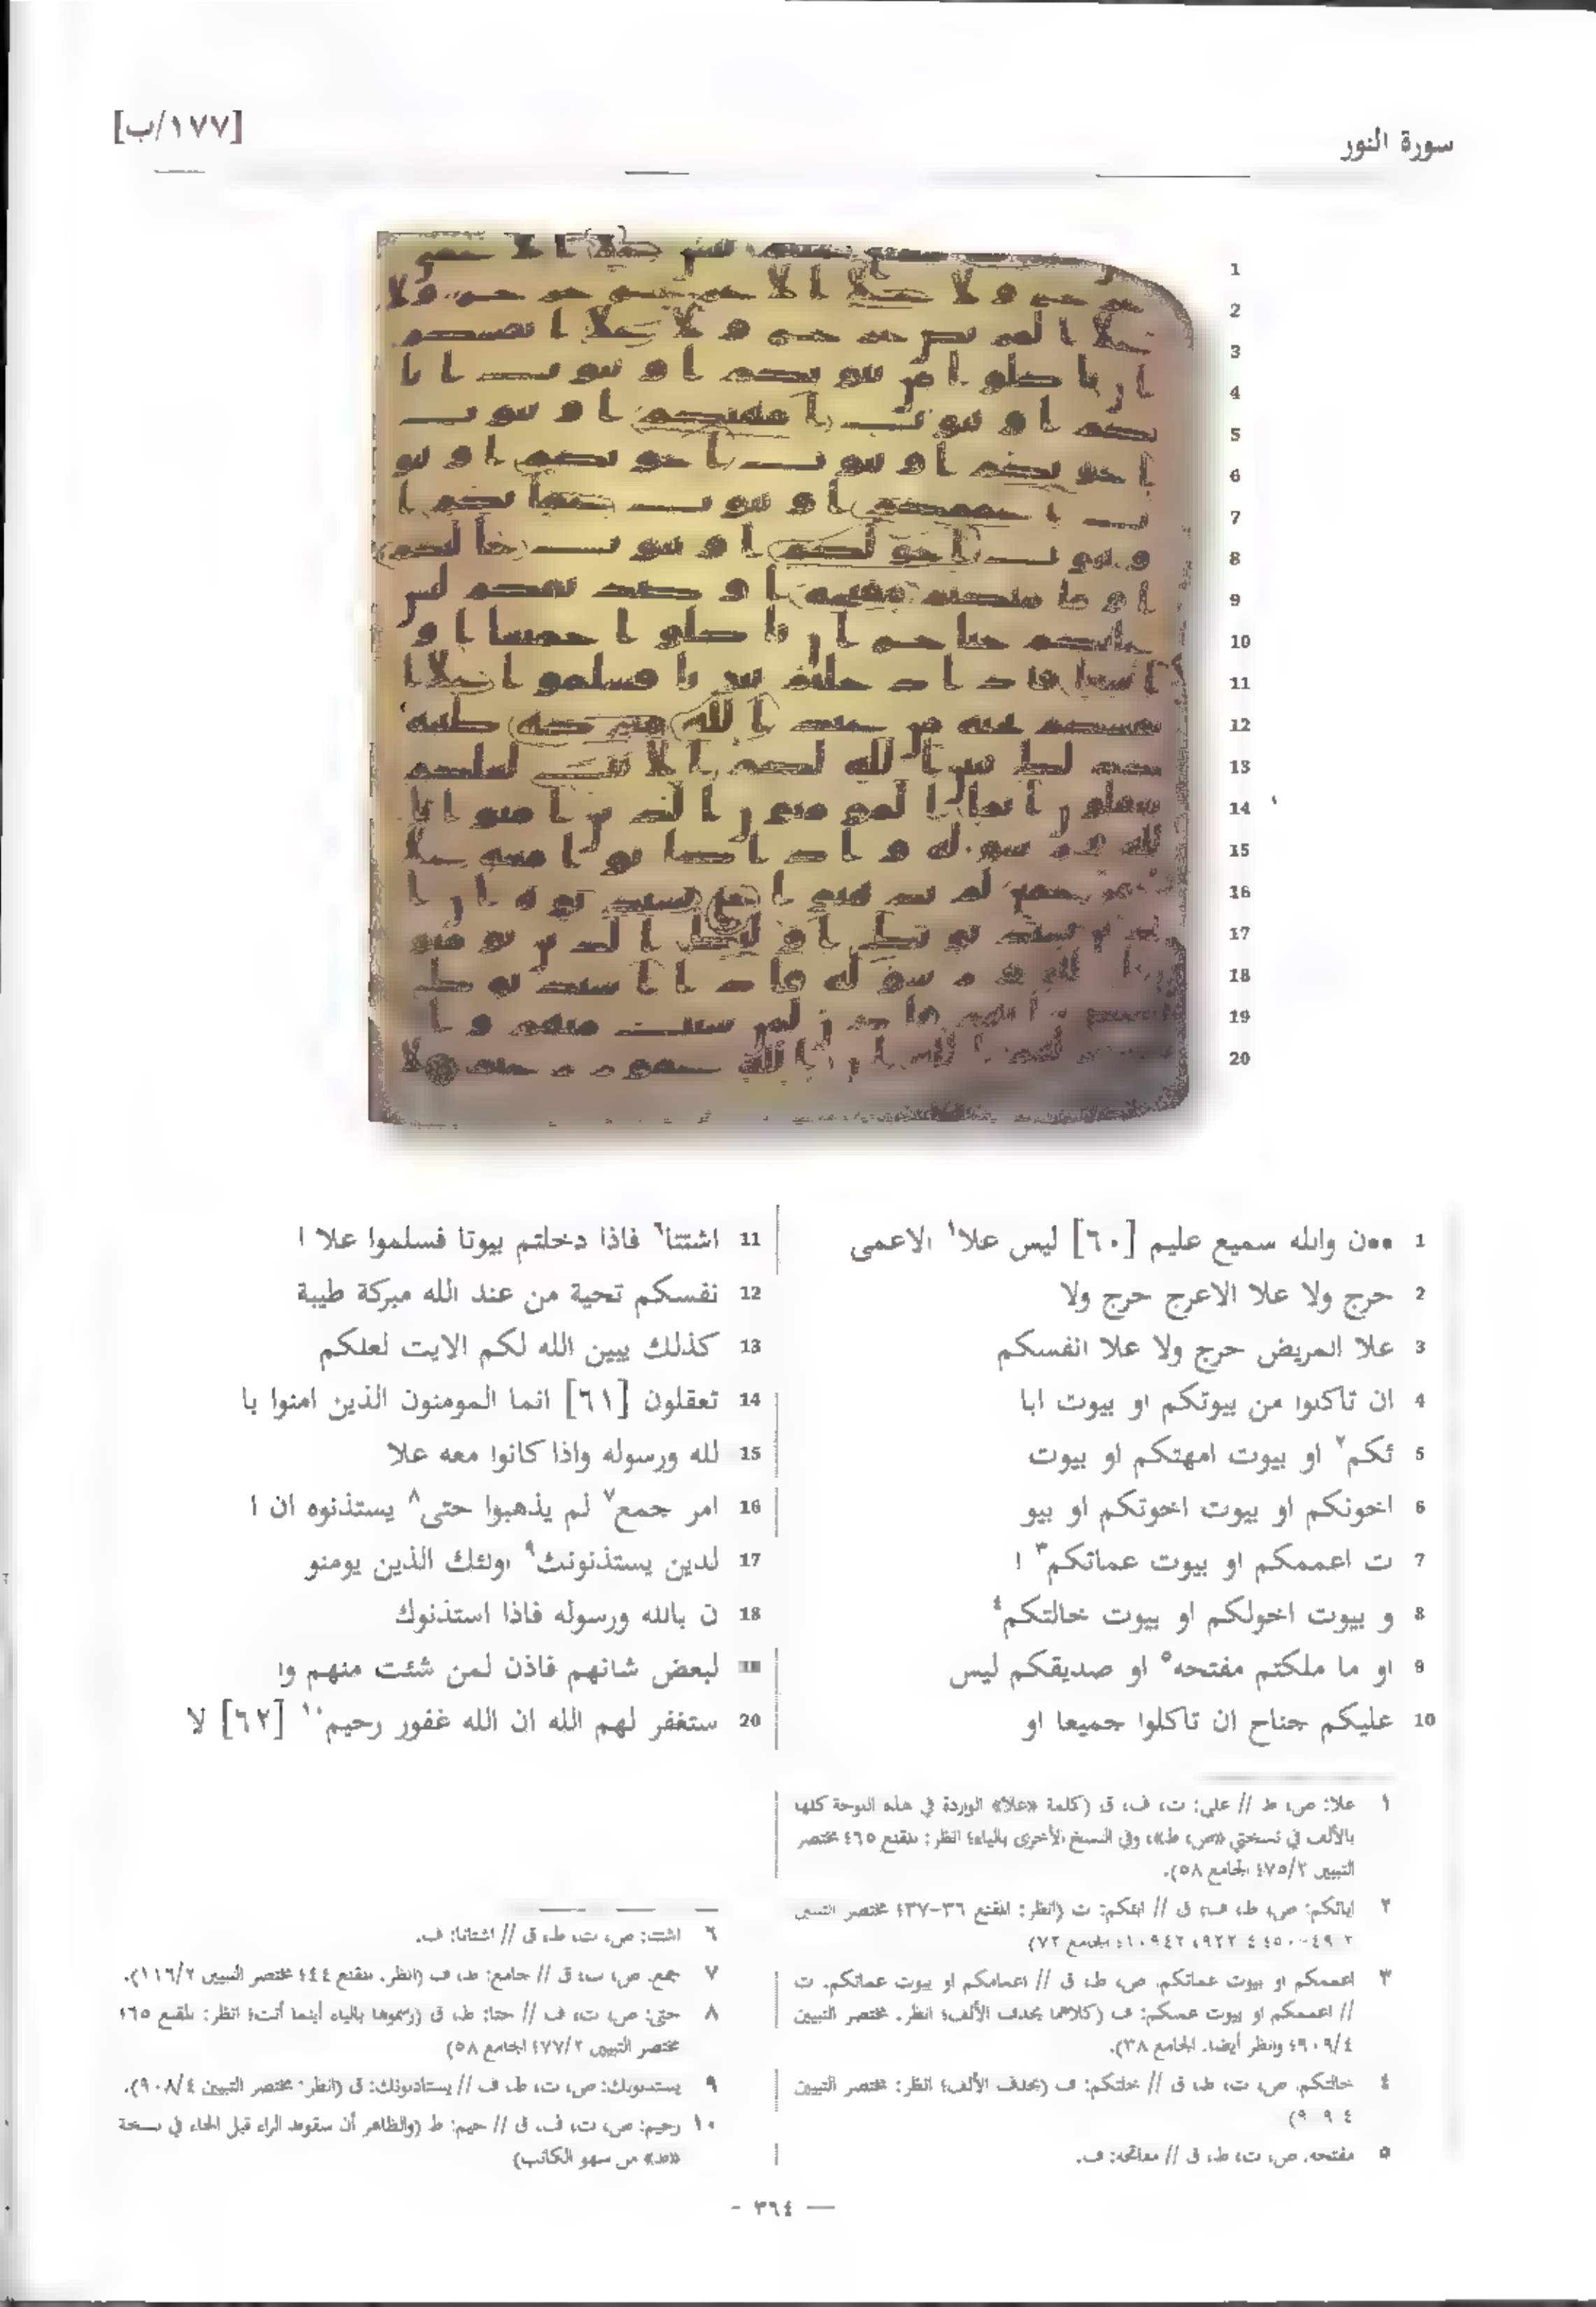 سورة النور
[١٧٧/ب]
1
2
3
4
5
6
7
8
9
10
11
12
13
14
15
16
17
18
19
20
1 ••ن والله سميع عليم [٦٠] ليس علا١ الاعمى
2 حرج ولا علا الاعرج حرج ولا
3 علا المريض حرج ولا علا انفسكم
4 ان تاكلوا من بيوتكم او بيوت ابا
5 ئكم٢ او بيوت امهتكم او بيوت
6 اخونكم او بيوت اخوتكم او بيو
7 ت اعممكم او بيوت عماتكم٣ ا
8 و بيوت اخولكم او بيوت خالتكم٤
9 او ما ملكتم مفتحه٥ او صديقكم ليس
10 عليكم جناح ان تاكلوا جميعا او
11 اشتتا٦ فاذا دخلتم بيوتا فسلموا علا ا
12 نفسكم تحية من عند الله مبركة طيبة
13 كذلك يبين الله لكم الايت لعلكم
14 تعقلون [٦١] انما المومنون الذين امنوا با
15 لله ورسوله واذا كانوا معه علا
16 امر جمع٧ لم يذهبوا حتى٨ يستذنوه ان ا
17 لذين يستذنونك٩ اولئك الذين يومنو
18 ن بالله ورسوله فاذا استذنوك
لبعض شانهم فاذن لمن شئت منهم وا
20 ستغفر لهم الله ان الله غفور رحيم١٠ [٦٢] لا
١ علا: ص، ط // على: ت، ف، ق (كلمة «علا» الواردة في هذه اللوحة كلها
بالألف في نسختي «ص، ط»، وفي النسخ الأخرى بالياء؛ انظر: المقنع ٤٦٥ مختصر
التبيين ٤٧٥/٢ الجامع ٥٨).
٢ ابائكم: ص، ط، ف، ق // ابئكم: ت (انظر: المقنع ٣٦-٤٣٧ مختصر التبيين
الجامع ٧٢)
٣ اعممكم او بيوت عماتكم: ص، ط، ق // اعمامكم او بيوت عماتكم: ت
// اعممكم او بيوت عمتكم: ف (كلاهما بحذف الألف؛ انظر: مختصر التبيين
٤٩٠٩/٤ وانظر أيضا: الجامع ٣٨).
٤ خالتكم: ص، ت، ط، ق // خلتكم: ف (بحذف الألف؛ انظر: مختصر التبيين
٥ مفتحه: ص، ت، ط، ق // مفاتحه: ف.
٦ اشتتا: ص، ت، ط، ق // اشتاتا: ف.
٧ جمع: ص، ت، ق // جامع: ط، ف (انظر: المقنع ٤٤٤ مختصر التبيين ١١٦/٢).
٨ حتى: ص، ت، ف // حتا: ط، ق (رسموها بالياء أينما أتت؛ انظر: المقنع ٤٦٥
مختصر التبيين ٤٧٧/٢ الجامع ٥٨)
٩ يستذنونك: ص، ت، ط، ف // يستاذنونك: ق (انظر: مختصر التبيين ٩٠٨/٤).
١٠ رحيم: ص، ت، ف، ق // حيم: ط (والظاهر أن سقوط الراء قبل الحاء في نسخة
«ط» من سهو الكاتب)
- ٣٦٤ —